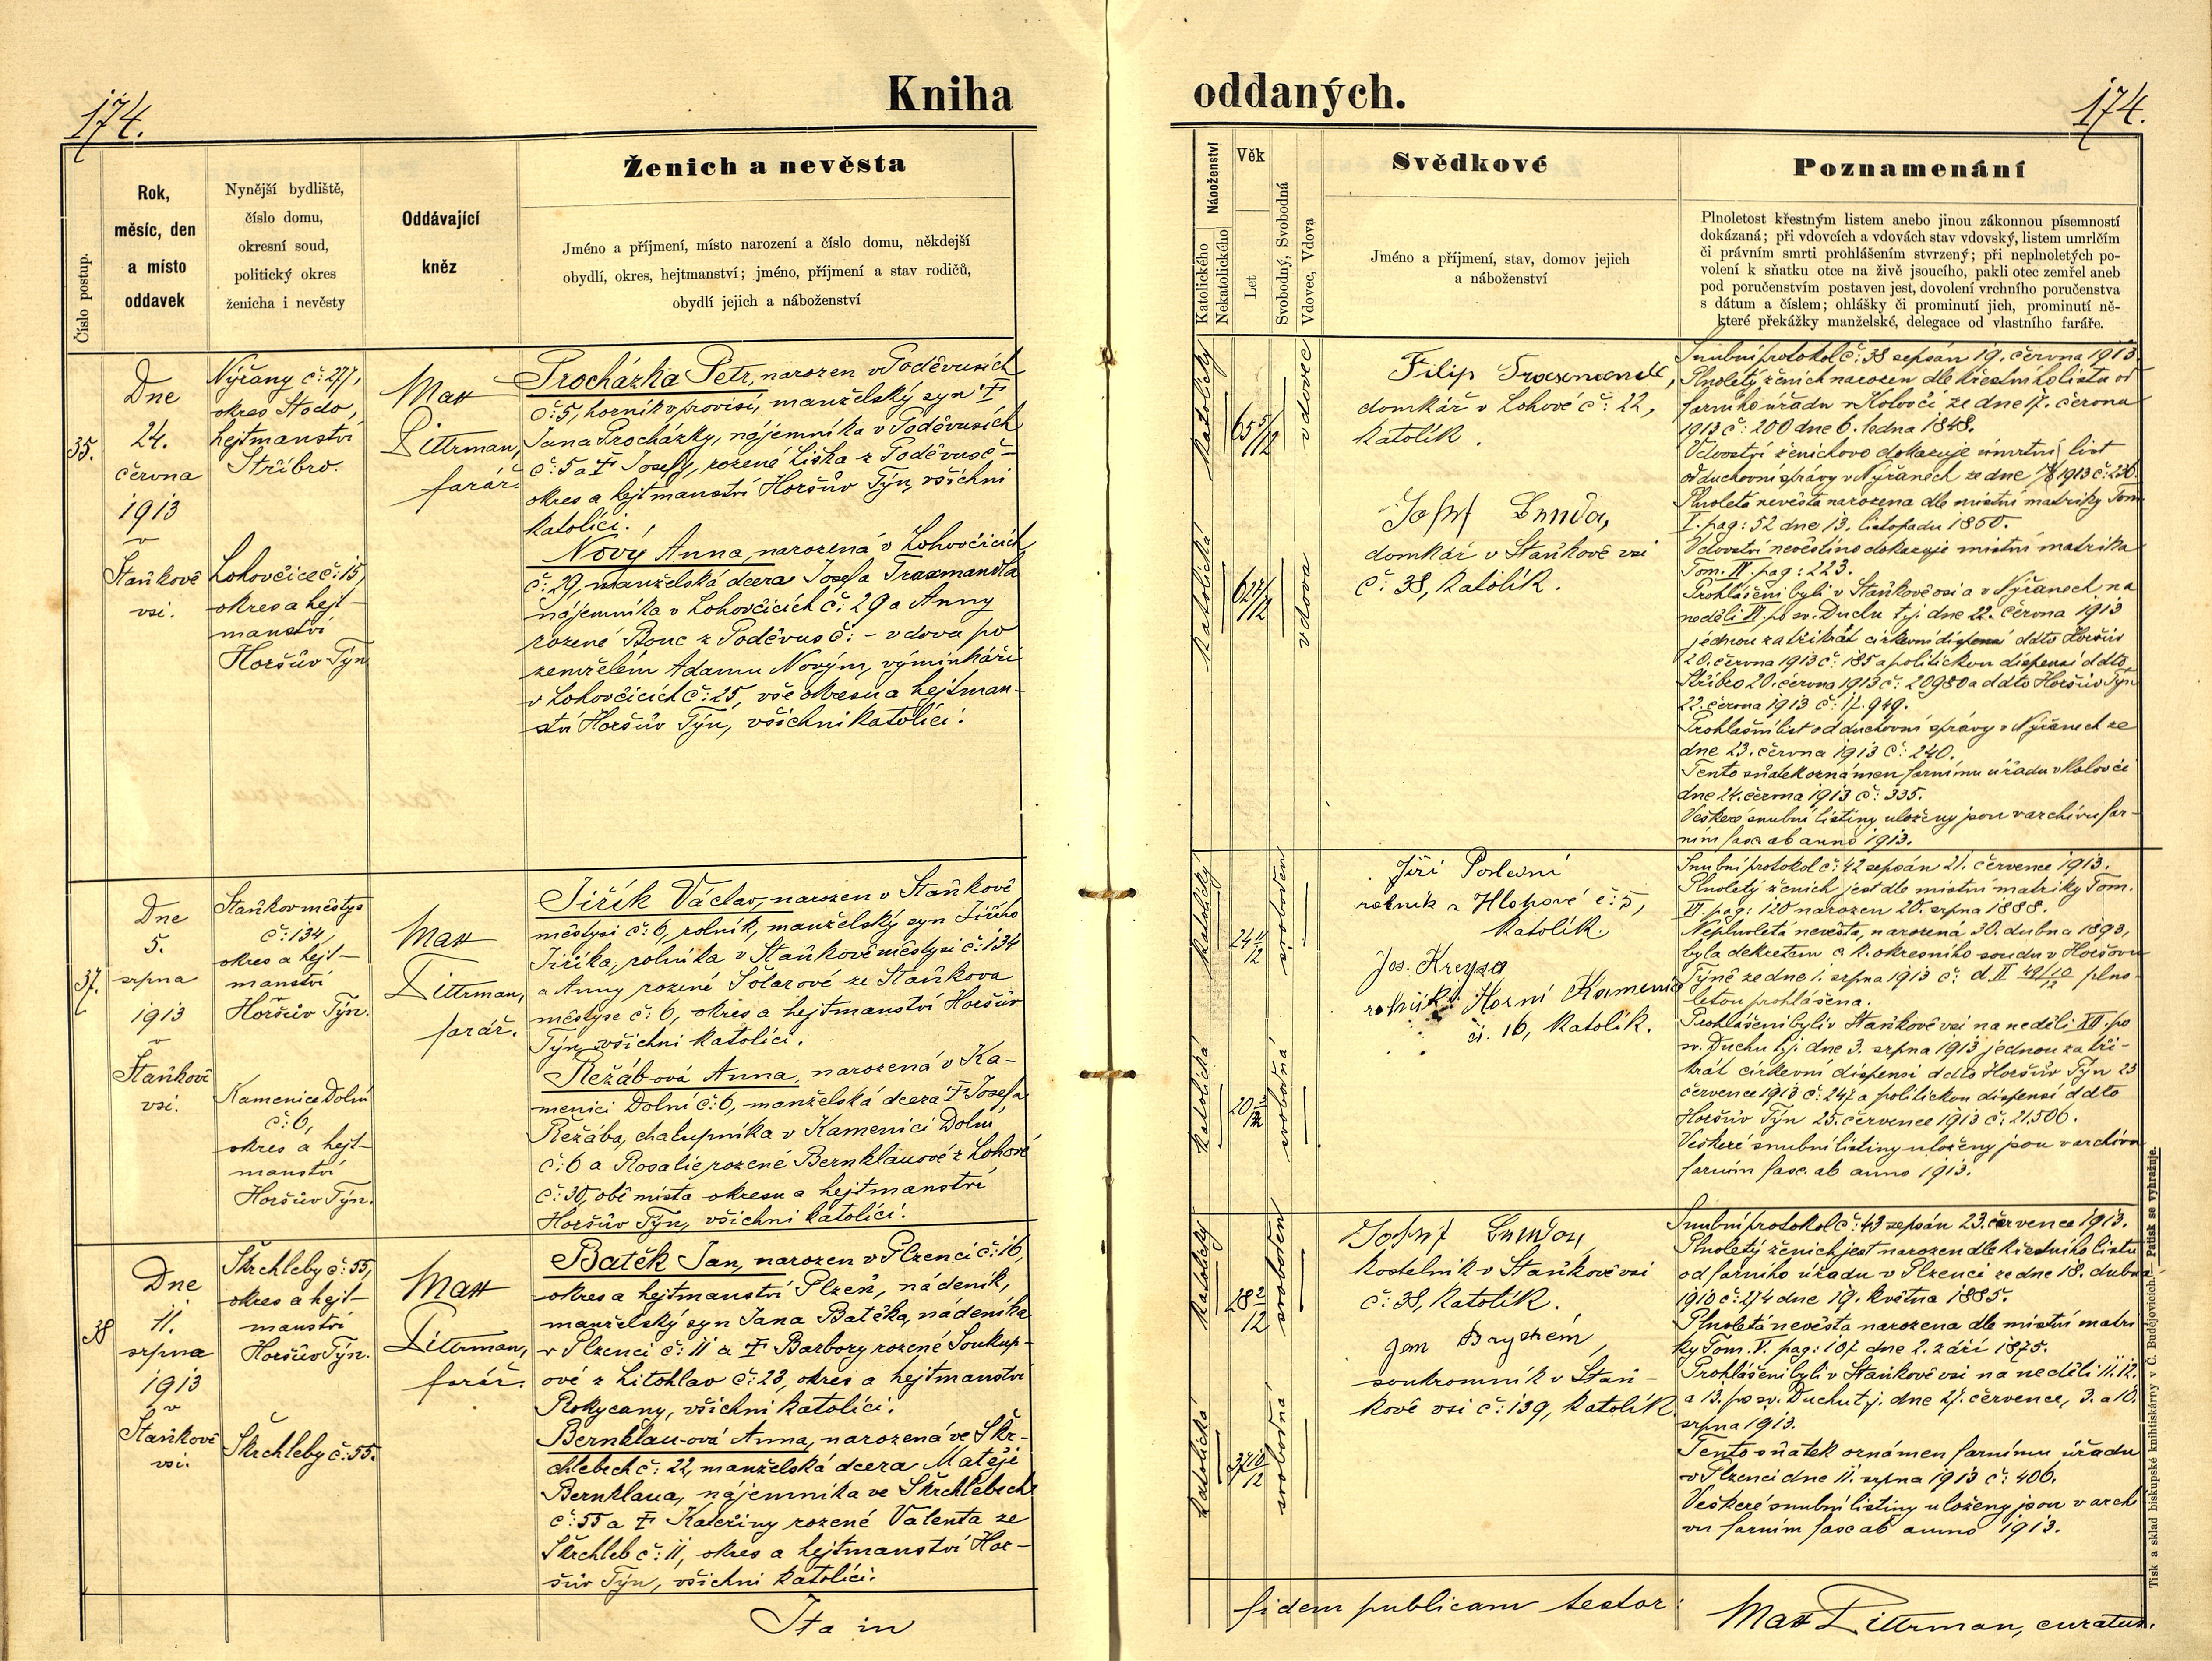 174.
Kniha
oddaných.
174.
Číslo postup.
Rok,
měsíc, den
a místo
oddavek
Nynější bydliště,
číslo domu,
okresní soud,
politický okres
ženicha i nevěsty
Oddávající
kněz
Ženich a nevěsta
Jméno a příjmení, místo narození a číslo domu, někdejší
obydlí, okres, hejtmanství; jméno, příjmení a stav rodičů,
obydlí jejich a náboženství
Náboženství
Katolického
Nekatolického
Věk
Let
Svobodný, Svobodná
Vdovec, Vdova
Svědkové
Jméno a příjmení, stav, domov jejich
a náboženství
Poznamenání
Plnoletost křestným listem anebo jinou zákonnou písemností
dokázaná; při vdovcích a vdovách stav vdovský, listem umrlčím
či právním smrti prohlášením stvrzený; při neplnoletých po-
volení k sňatku otce na živě jsoucího, pakli otec zemřel aneb
pod poručenstvím postaven jest, dovolení vrchního poručenstva
s dátum a číslem; ohlášky či prominutí jich, prominutí ně-
které překážky manželské, delegace od vlastního faráře.
35.
Dne
24.
června
1913
v
Staňkově
vsi.
Nýřany č: 277,
okres Stodo,
hejtmanství
Stříbro.
Lohovčice č: 15,
okres a hejt-
manství
Horšův Týn
Max
Dittrman,
farář.
Procházka Petr, narozen v Poděvusích
č: 5, horník v provisi, manželský syn †
Jana Procházky, nájemníka v Poděvusích
č: 5 a † Josefy, rozené Liška z Poděvus č: -
okres a hejtmanství Horšův Týn, všichni
katolíci.
Nový Anna, narozená v Lohovčicích
č: 29, manželská dcera Josefa Traxmandla
nájemníka v Lohovčicích č: 29 a Anny
rozené Bouc z Poděvus č: - vdova po
zemřelém Adamu Novým, výminkáři
v Lohovčicích č: 25, vše okresu a hejtman-
ství Horšův Týn, všichni katolíci.
katolický
65 5/12
vdovec
katolická
62 7/12
vdova
Filip Traxmandl,
domkář v Lohové č: 22,
katolík.
Josef Lunda,
domkář v Staňkově vsi
č: 38, katolík.
Snubní protokol č: 38 sepsán 19. června 1913.
Plnoletý ženich narozen dle křestního listu od
farního úřadu v Koloveči ze dne 17. června
1913 č: 200 dne 6. ledna 1848.
Vdovství ženichovo dokazuje úmrtní list
od duchovní správy v Nýřanech ze dne 1913 č: 230.
Plnoletá nevěsta narozena dle místní matriky Tom.
I. pag: 52 dne 13. listopadu 1850.
Vdovství nevěstino dokazuje místní matrika
Tom. IV. pag: 223.
Prohlášeni byli v Staňkově vsi a v Nýřanech na
neděli VI. po sv. Duchu t. j. dne 22. června 1913
jednou za třikrát církevní dispensí ddto Horšův
20. června 1913 č: 185 a politickou dispensí ddto
Stříbro 20. června 1913 č: 20980 a ddto Horšův Týn
22. června 1913 č: 17.949.
Prohlašní list od duchovní správy v Nýřanech ze
dne 23. června 1913 č: 240.
Tento sňatek oznámen farnímu úřadu v Koloveči
dne 24. června 1913 č: 335.
Veškeré snubní listiny uloženy jsou v archivu far-
ním fasc. ab anno 1913.
37.
Dne
5.
srpna
1913
v
Staňkově
vsi.
Staňkov městys
č: 134,
okres a hejt-
manství
Horšův Týn.
Kamenice Dolní
č: 6,
okres a hejt-
manství
Horšův Týn.
Max
Dittrman,
farář.
Jiřík Václav, narozen v Staňkově
městysi č: 6, rolník, manželský syn Jiřího
Jiříka, rolníka v Staňkově městysi č: 134
a Anny rozené Šolarové ze Staňkova
městyse č: 6, okres a hejtmanství Horšův
Týn, všichni katolíci.
Řežábová Anna, narozená v Ka-
menici Dolní č: 6, manželská dcera † Josefa
Řežába, chalupníka v Kamenici Dolní
č: 6 a Rosalie rozené Bernklauové z Lohové
č: 30, obě místa okresu a hejtmanství
Horšův Týn, všichni katolíci.
katolický
24 11/12
svoboden
katolická
20 3/12
svobodná
Jiří Poslední
rolník z Hlohové č: 5,
katolík.
Jos. Kreysa
rolník Horní Kamenice
čs. 16, katolík.
Snubní protokol č: 42 sepsán 21. července 1913.
Plnoletý ženich jest dle místní matriky Tom.
VI. pag: 120 narozen 20. srpna 1888.
Neplnoletá nevěsta, narozená 30. dubna 1893,
byla dekretem c. k. okresního soudu v Horšově
Týně ze dne 1. srpna 1913 č: d. II 49/10/12 plno-
letou prohlášena.
Prohlášeni byli v Staňkově vsi na neděli XII. po
sv. Duchu t. j. dne 3. srpna 1913 jednou za tři-
krát církevní dispensí ddto Horšův Týn 23
července 1913 č: 247 a politickou dispensí ddto
Horšův Týn 25. července 1913 č: 21.506.
Veškeré snubní listiny uloženy jsou v archivu
farním fasc. ab anno 1913.
38
Dne
11.
srpna
1913
v
Staňkově
vsi.
Škrchleby č: 55,
okres a hejt-
manství
Horšův Týn.
Škrchleby č: 55.
Max
Dittrman,
farář.
Batěk Jan, narozen v Plzenci č: 16,
okres a hejtmanství Plzeň, nádeník,
manželský syn Jana Batěka, nádeníka
v Plzenci č: 11 a † Barbory rozené Soukup-
ové z Litohlav č: 23, okres a hejtmanství
Rokycany, všichni katolíci.
Bernklau-ová Anna, narozená ve Škr-
chlebech č: 22, manželská dcera Matěje
Bernklaua, nájemníka ve Škrchlebech
č: 55 a † Kateřiny rozené Valenta ze
Škrchleb č: 11, okres a hejtmanství Hor-
šův Týn, všichni katolíci.
katolický
28 2/12
svoboden
katolická
37 10/12
svobodná
Josef Lunda,
kostelník v Staňkově vsi
č: 38, katolík.
Jan
soukromník v Staň-
kově vsi č: 139, katolík.
Snubní protokol č: 43 sepsán 23. července 1913.
Plnoletý ženich jest narozen dle křestního listu
od farního úřadu v Plzenci ze dne 18. dubna
1910 č: 274 dne 19. května 1885.
Plnoletá nevěsta narozena dle místní matri
ky Tom. V. pag: 107 dne 2. září 1875.
Prohlášeni byli v Staňkově vsi na neděli 11. 12.
a 13. po sv. Duchu t. j. dne 27. července, 3. a 10.
srpna 1913.
Tento sňatek oznámen farnímu úřadu
v Plzenci dne 11. srpna 1913 č: 406.
Veškeré snubní listiny uloženy jsou v archi
vu farním fasc. ab anno 1913.
Ita in
fidem publicam testor:
Max Dittrman, curatus.
Tisk a sklad biskupské knihtiskárny v Č. Budějovicích. — Patisk se vyhražuje.